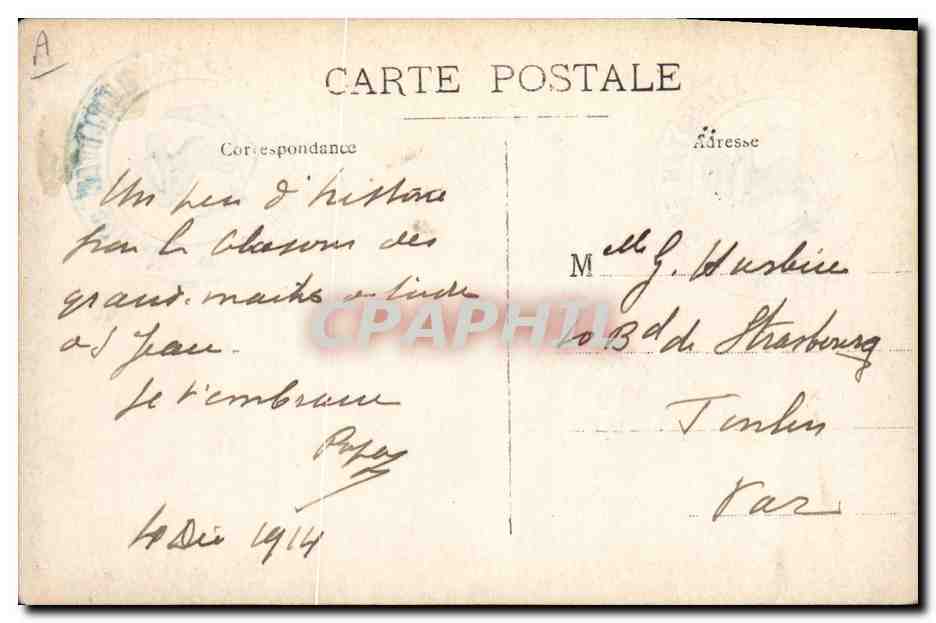 A
CARTE POSTALE
Correspondance
Un peu d'histoire
par le blasons des
grands-maitres
St Jean.
Je t'embrasse
Papa
Dec 1914
Adresse
Melle G.
Bd de Strasbourg
Toulon
Var
CPAPHIL